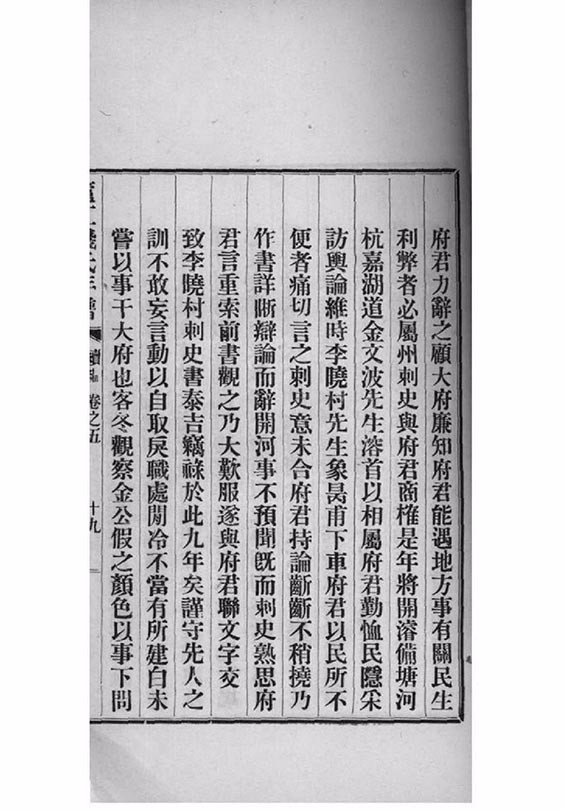 府君力辭之顧大府廉知府君能遇地方事有關民生
利弊者必屬州刺史與府君商榷是年將開濬備塘河
杭嘉湖道金文波先生溶首以相屬府君勤恤民隱采
訪輿論維時李曉村先生象昺甫下車府君以民所不
便者痛切言之刺史意未合府君持論齗齗不稍撓乃
作書詳晰辯論而辭開河事不預聞旣而刺史熟思府
君言重索前書觀之乃大歎服遂與府君聯文字交
致李曉村刺史書泰吉竊祿於此九年矣謹守先人之
訓不敢妄言動以自取戾職處閒冷不當有所建白未
嘗以事干大府也客冬觀察金公假之顏色以事下問
卷之五
十九